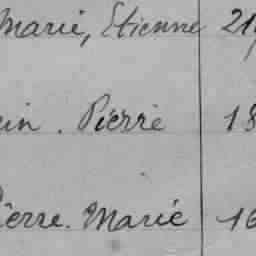 Marie, Etienne 21
in. Pierre 18
Pierre. Marie 16